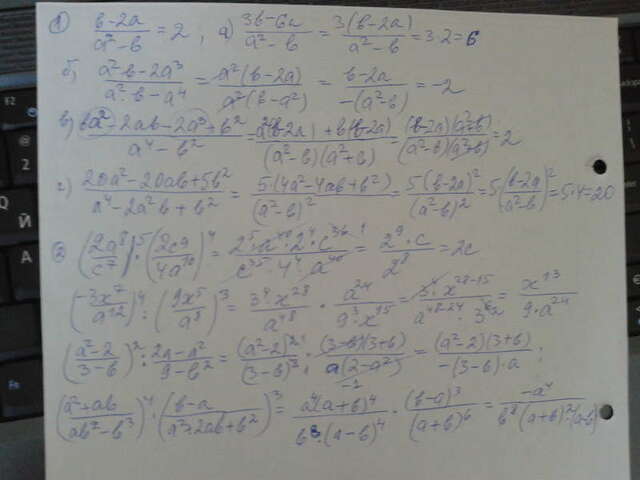 ① (в-2a)/(a²-в) = 2, а) (3в-6a)/(a²-в) = 3(в-2a)/(a²-в) = 3·2 = 6
б) (a²в-2a³)/(a²·в-a⁴) = a²(в-2a)/a²(в-a²) = (в-2a)/-(a²-в) = -2
в) (вa²-2aв-2a³+в²)/(a⁴-в²) = (a²(в-2a)+в(в-2a))/(a²-в)(a²+в) = (в-2a)(a²+в)/(a²-в)(a²+в) = 2
г) (20a²-20aв+5в²)/(a⁴-2a²в+в²) = 5(4a²-4aв+в²)/(a²-в)² = 5(в-2a)²/(a²-в)² = 5((в-2a)/(a²-в))² = 5·4=20
② (2a⁸/c⁷)⁵·(2c⁹/4a¹⁰)⁴ = 2⁵·a⁴⁰·2⁴·c³⁶/c³⁵·4⁴·a⁴⁰ = 2⁹·c/2⁸ = 2c
(-3x⁷/a¹²)⁴:(9x⁵/a⁸)³ = 3⁴·x²⁸/a⁴⁸ · a²⁴/9³·x¹⁵ = 3⁴·x²⁸⁻¹⁵/a⁴⁸⁻²⁴·3⁶ = x¹³/9·a²⁴
((a²-2)/(3-в))²:(2a-a²)/(9-в²) = (a²-2)²/(3-в)² · (3-в)(3+в)/a(2-a²) = (a²-2)(3+в)/-(3-в)·a;
((a²+aв)/(aв²-в³))⁴·((в-a)/(a²+2aв+в²))³ = a⁴(a+в)⁴/в⁸·(a-в)⁴ · (в-a)³/(a+в)⁶ = -a⁴/в⁸(a+в)²·(a-в)